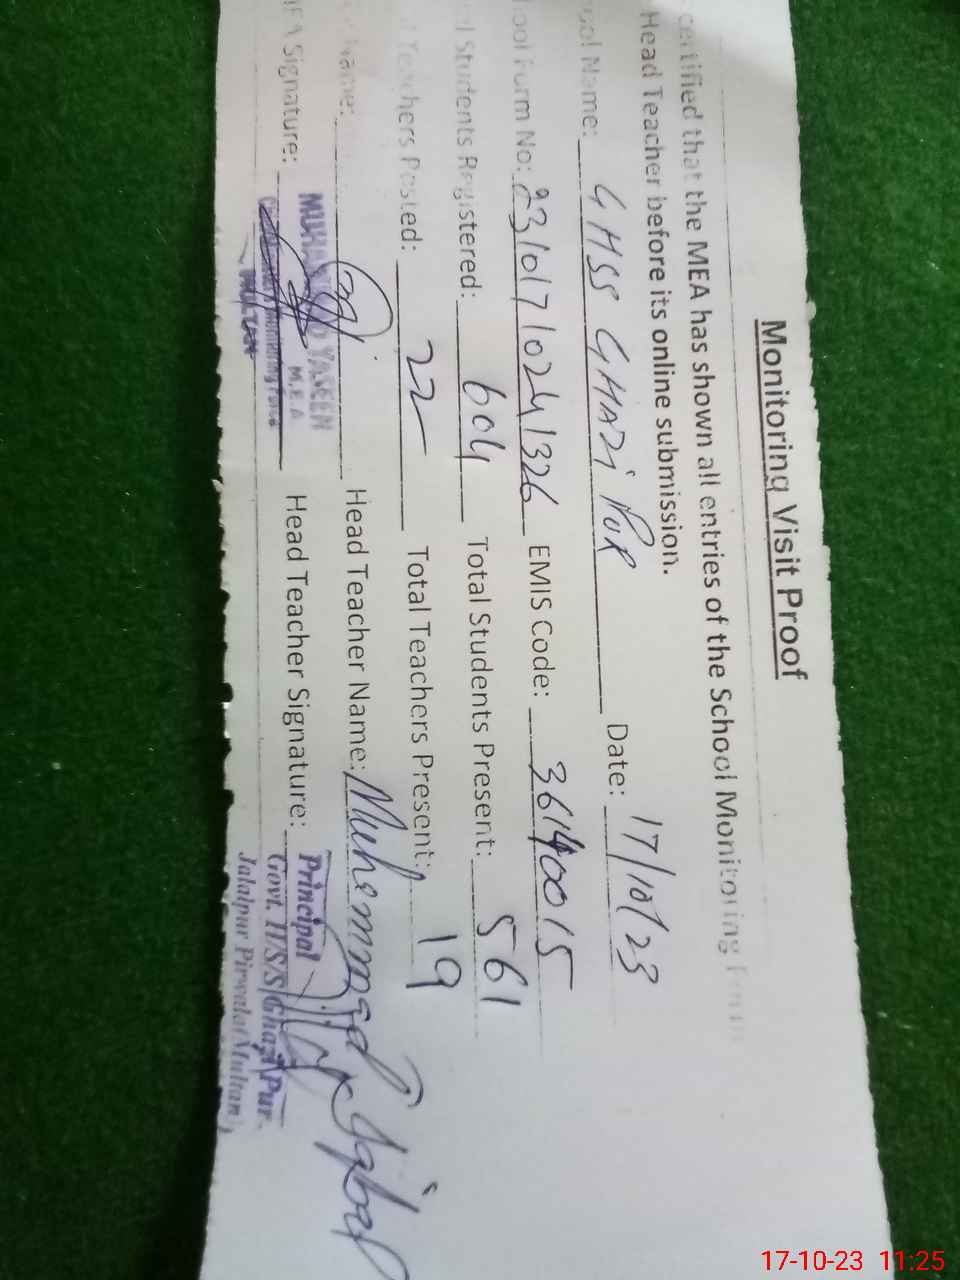 Monitoring Visit Proof
certified that the MEA has shown all entries of the School Monitoring Form
Head Teacher before its online submission.
ool Name: GHSS GHAZI PUR Date: 17/10/23
ool Form No: 231017/0241326 EMIS Code: 36140015
al Students Registered: 604 Total Students Present: 561
l Teachers Posted: 22 Total Teachers Present: 19
Name: Head Teacher Name: Muhammad Iqbal
MUHAMMAD YASEEN
M.E.A
MEA Signature: Head Teacher Signature:
Monitoring Force
MULTAN
Principal
Govt. H/S/S Ghazi Pur
Jalalpur Pirwala (Multan)
17-10-23 11:25